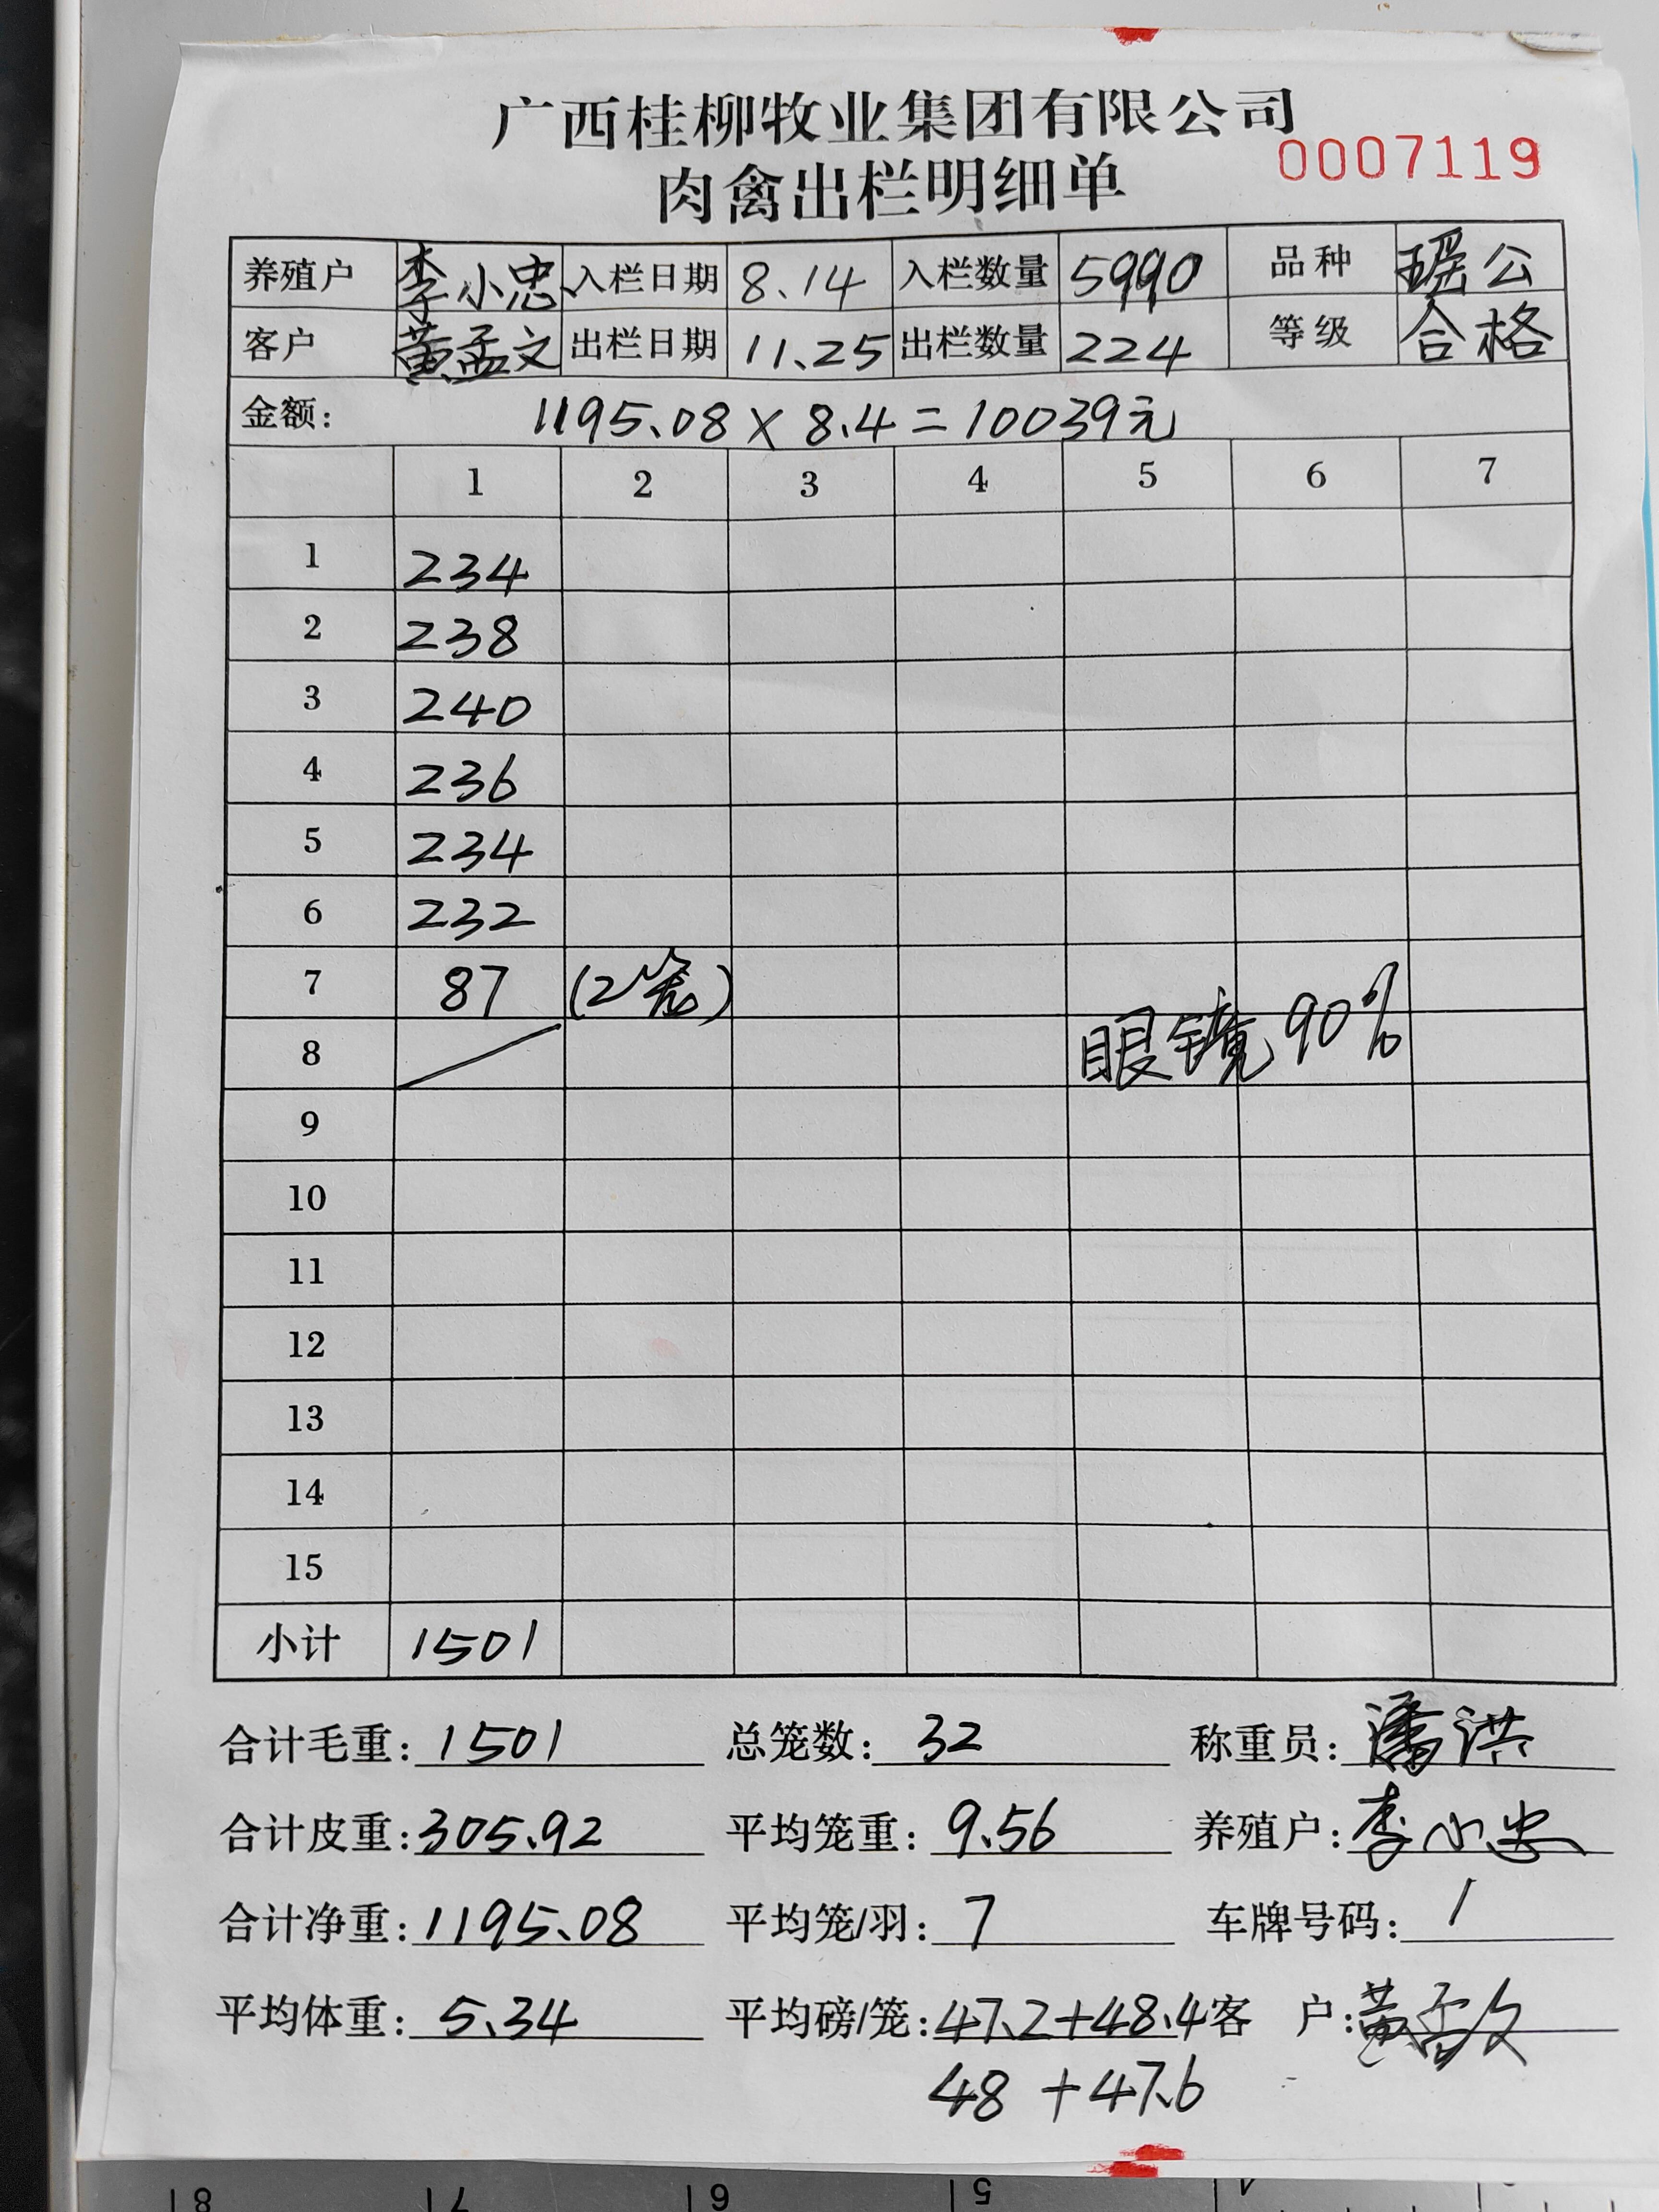 广西桂柳牧业集团有限公司
0007119
肉禽出栏明细单
养殖户 李小忠 入栏日期 8.14 入栏数量 5990 品种 瑶公
客户 黄孟文 出栏日期 11.25 出栏数量 224 等级 合格
金额: 1195.08×8.4=10039元
1 2 3 4 5 6 7
1 234
2 238
3 240
4 236
5 234
6 232
7 87 (2笼)
8 眼镜90%
9
10
11
12
13
14
15
小计 1501
合计毛重: 1501 总笼数: 32 称重员: 潘洪
合计皮重: 305.92 平均笼重: 9.56 养殖户: 李小忠
合计净重: 1195.08 平均笼/羽: 7 车牌号码: /
平均体重: 5.34 平均磅/笼: 47.2+48.4 客 户: 黄孟文
48+47.6
81 71 61 51